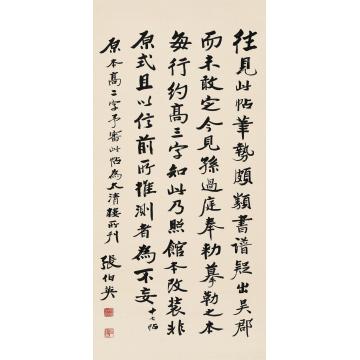 往見此帖筆勢頗類書譜疑出吳郡
而未敢定今見孫過庭奉勅摹勒之本
每行約高三字知此乃照館本改裝非
原式且以信前所推測者為不妄十七帖
原本高二字予審此帖為大清樓所刊 張伯英